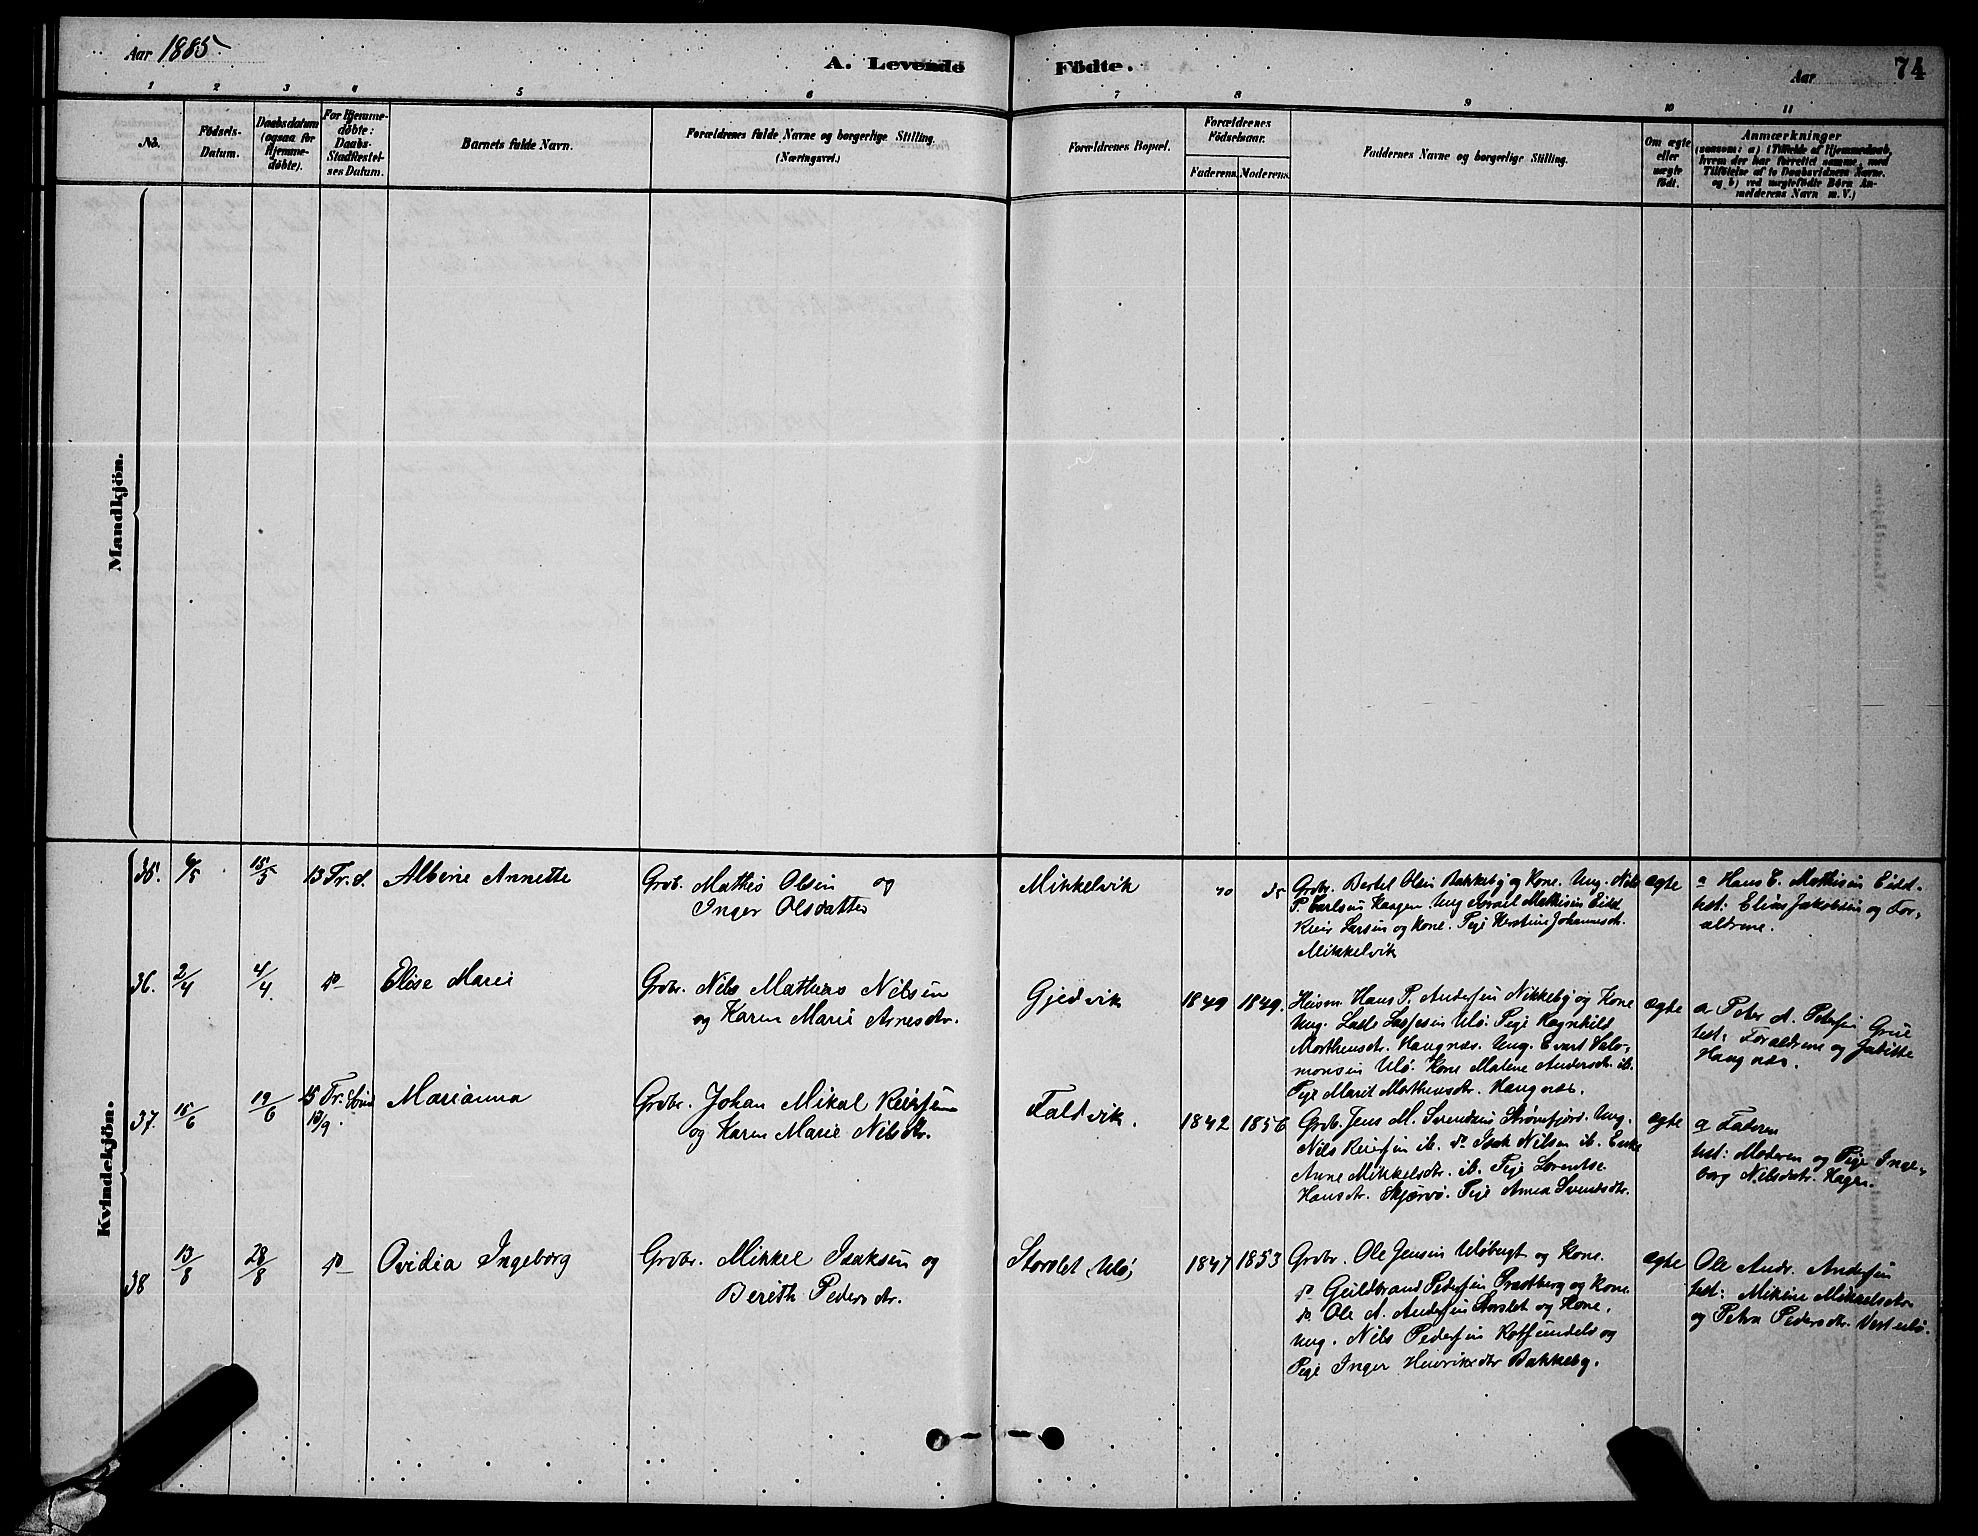 Aar 1885.
A. Levende Födte.
Aar
74
1 2 3 4 5 6 7 8 9 10 11
No.
Födsels-
Datum.
Daabsdatum
(ogsaa for
Hjemme-
döbte).
For Hjemme-
döbte:
Daabs-
Stadfæstel-
ses Datum.
Barnets fulde Navn.
Forældrenes fulde Navne og borgerlige Stilling.
(Næringsvei.)
Forældrenes Bopæl.
Forældrenes
Födselsaar.
Faderens. Moderens.
Faddernes Navne og borgerlige Stilling.
Om ægte
eller
uægte
födt.
Anmærkninger
(saasom: a) i Tilfælde af Hjemmedaab,
hvem der har forrettet samme, med
Tilföielse af to Daabsvidners Navne,
og b) ved uægtefödte Börn An-
melderens Navn m. V.)
Mandkjön.
Kvindekjön.
35. 6/5 15/5 13 Tr. S.
Albine Annette
Grbr. Mathis Olsen og
Inger Olsdatter
Mikkelvik
40
Grbr. Bertel Olsen Bakkeby og Kone. Ung. Nils
P. Carlsen Kaagen. Ung Israel Mathisen Eild
Reier Larsen og Kone. Pige Kerstine Johannesdr.
Mikkelvik
ægte
a Hans E. Mathisen Eild.
test: Elias Jakobsen og For,
ældrene.
36. 2/4 4/4. do
Elise Marie
Grbr. Nils Mathias Nilsen
og Karen Marie Arnesdr.
Gjedvik
1849 1849.
Huusm. Hans P. Andersen Nikkeby og Kone
Ung. Lasse Lassesen Ulö. Pige Ragnhild
Morthensdr. Haugnæs. Ung. Evart Salo-
monsen Ulö. Kone Malene Andersdr. ib.
Pige Marit Mathensdr. Haugnæs.
ægte
a Peter A. Petersen Grue
test: Forældrene og
Haugnæs.
37. 15/6 19/6 15 Tr. Sönd
13/9.
Marianna
Grbr. Johan Mikal Reiersen
og Karen Marie Nilsdtr.
Faldvik.
1842 1856
Grbr. Jens M. Svendsen Strömfjord. Ung.
Nils Reiersen ib. do Isak Nilsen ib. Enke
Anne Mikkelsdtr. ib. Pige Lorentse
Hansdtr. Skjærvö. Pige Anna Svendsdtr.
ægte
a Faderen
test: Moderen og Pige Inge,
borg Nilsdatr. Kagen.
38 13/8 28/8 do
Ovidia Ingeborg
Grbr. Mikkel Isaksen og
Berith Pedersdtr.
Storslet, Ulö,
1847 1853
Grbr. Ole Jensen Ulöbugt og Kone.
do Geildbrand Pedersen Bratberg og Kone
do. Ole A. Andersen Storslet og Kone,
Ung. Nils Pedersen Rotsundelv og
Pige Inger Henriksdtr Bakkeby.
ægte
Ole Andr. Andersen
test: Mikine Mikkelsdtr.
og Petra Pedersdtr. Vestulö.